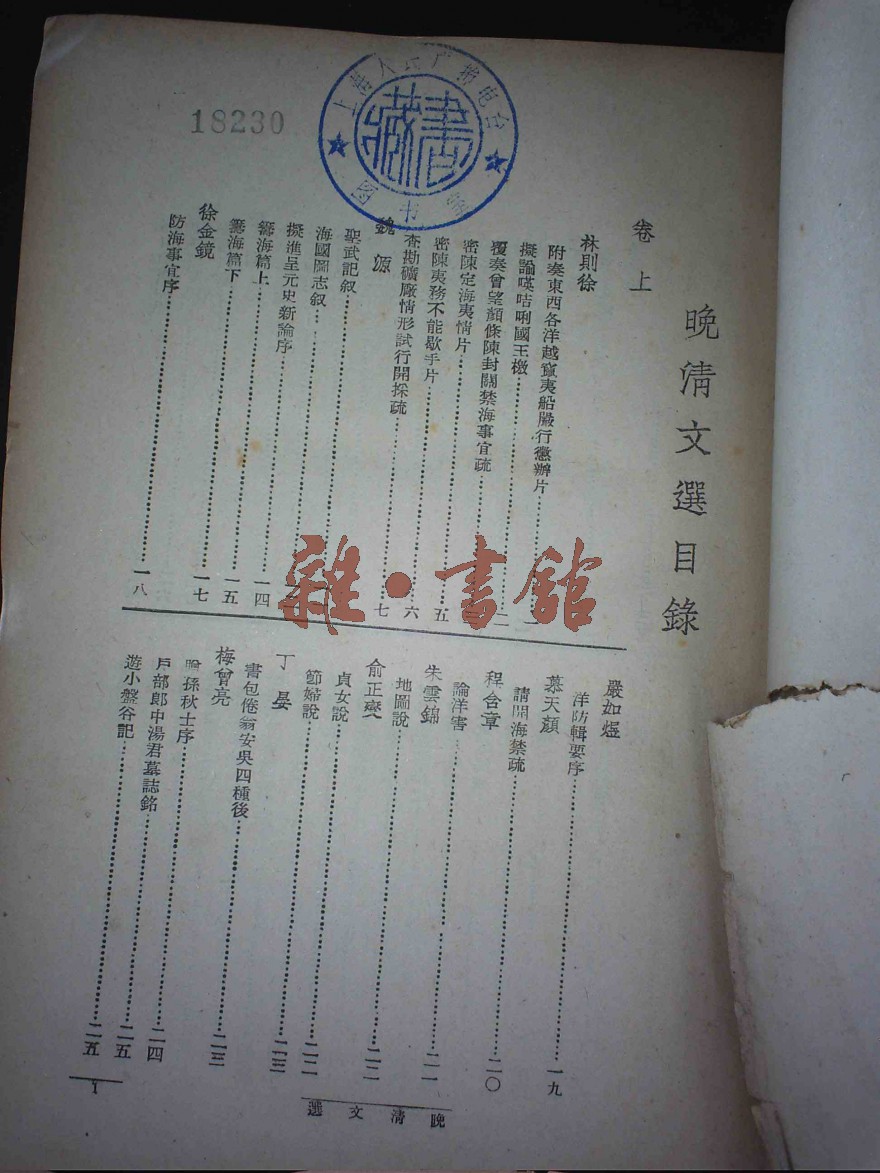 晚清文選目錄
卷上
林則徐
附奏東西各洋越竄夷船嚴行懲辦片……一
擬諭𠸄咭唎國王檄……二
覆奏曾望顏條陳封關禁海事宜疏……二
密陳定海夷情片……
密陳夷務不能歇手片……五
查勘礦廠情形試行開採疏……六
魏源
聖武記叙……七
海國圖志叙……
擬進呈元史新論序……
籌海篇上……一四
籌海篇下……一五
徐金鏡……一七
防海事宜序……一八
嚴如熤
洋防輯要序……一九
慕天顏
請開海禁疏……二〇
程含章
論洋害……二一
朱雲錦
地圖說……二二
俞正燮
貞女說……二二
節婦說……二三
丁晏
書包倦翁安吳四種後……二三
梅曾亮
贈孫秋士序……二四
戶部郎中湯君墓誌銘……二五
遊小盤谷記……二五
1
晚清文選
18230
上海人民广播电台
藏書
图书室
雜·書館